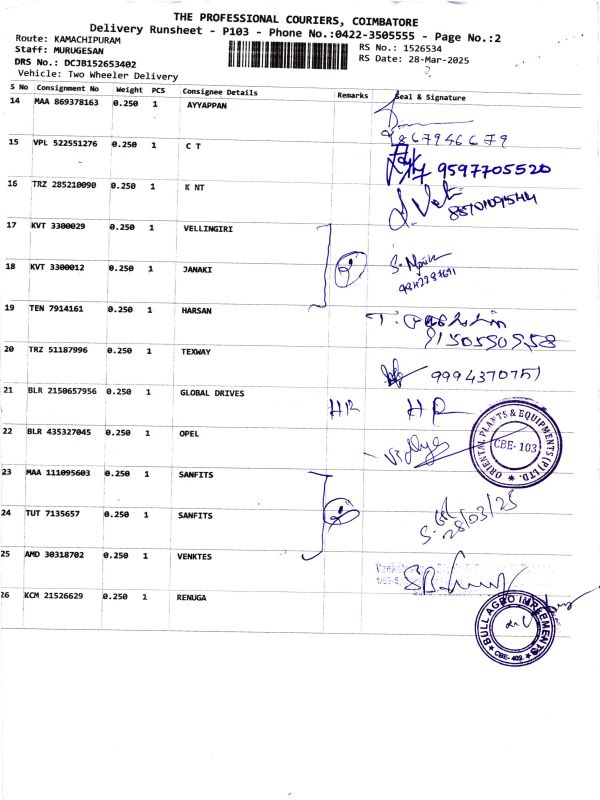 THE PROFESSIONAL COURIERS, COIMBATORE
Delivery Runsheet - P103 - Phone No.:0422-3505555 - Page No.:2
Route: KAMACHIPURAM RS No.: 1526534
Staff: MURUGESAN RS Date: 28-Mar-2025
DRS No.: DCJB152653402
Vehicle: Two Wheeler Delivery
S No Consignment No Weight PCS Consignee Details Remarks Seal & Signature
14 MAA 869378163 0.250 1 AYYAPPAN
15 VPL 522551276 0.250 1 C T 9597705520
16 TRZ 285210090 0.250 1 K NT
17 KVT 3300029 0.250 1 VELLINGIRI
18 KVT 3300012 0.250 1 JANAKI
19 TEN 7914161 0.250 1 HARSAN
20 TRZ 51187996 0.250 1 TEXWAY 9994370751
21 BLR 2150657956 0.250 1 GLOBAL DRIVES HR HR
ORIENTAL PLANTS & EQUIPMENTS (P) LTD. CBE-103
22 BLR 435327045 0.250 1 OPEL Vidhya
23 MAA 111095603 0.250 1 SANFITS
24 TUT 7135657 0.250 1 SANFITS 28/03/25
25 AMD 30318702 0.250 1 VENKTES
26 KCM 21526629 0.250 1 RENUGA
BULL AGRO IMPLEMENTS CBE-402